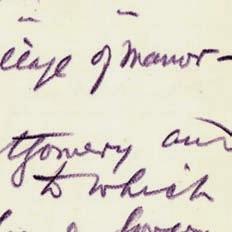 llage of Manor-
tgomery and
to which